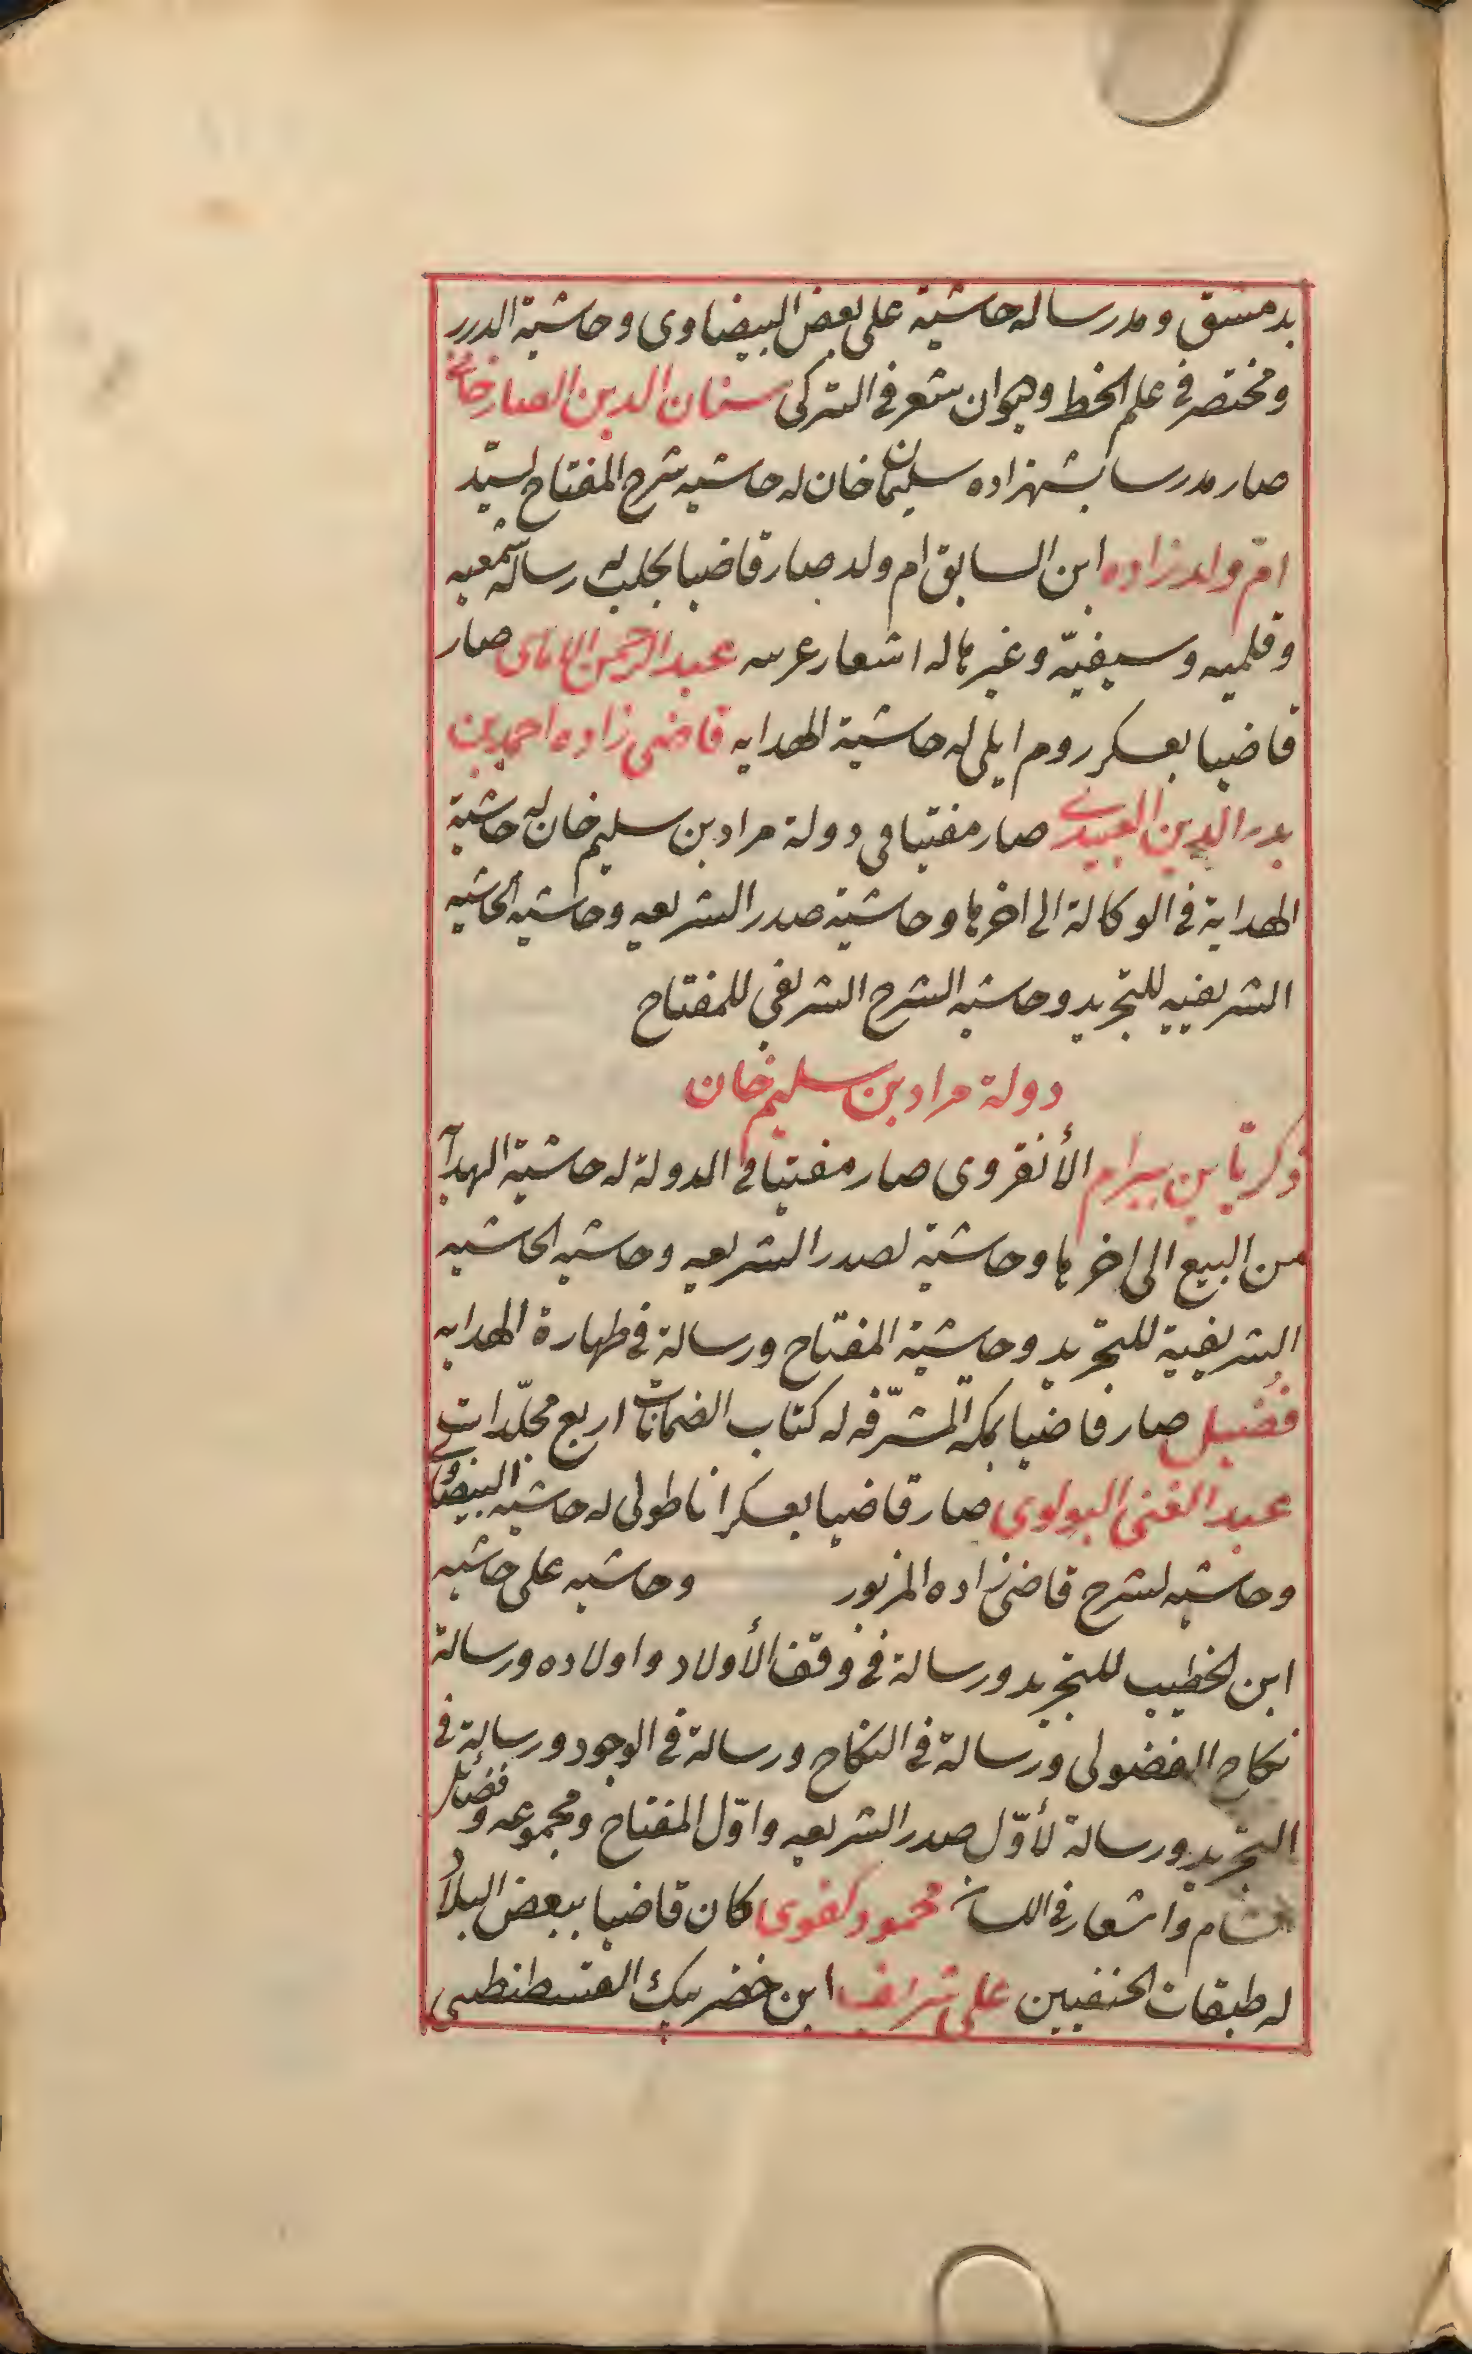 بدمشق ومدرسا له حاشية على بعض البيضاوى وحاشية الدرر
ومختصر فى علم الخط وديوان شعر فى التركى سنان الدين الصارخانى
صار مدرسا بشهزاده سليمان خان له حاشيه شرح المفتاح لسيد
ام ولد زاده ابن السابق ام ولد صار قاضيا بحلب له رساله شمعيه
وقلميه وسيفيّه وغيرها له اشعار عربيه عبد الرحمن الاماى صار
قاضيا بعسكر روم ايلى له حاشية الهدايه قاضى زاده احمد بن
بدر الدين صار مفتيا فى دولة مراد بن سليم خان له حاشية
الهداية فى الوكالة الى اخرها وحاشية صدر الشريعه وحاشيه الحاشيه
الشريفيه للتجريد وحاشيه الشرح الشريفى للمفتاح
دولة مراد بن سليم خان
زكريّا بن بيرام الأنقروى صار مفتيا فى الدولة له حاشية الهدآ
من البيع الى اخرها وحاشية لصدر الشريعه وحاشيه الحاشيه
الشريفية للتجريد وحاشية المفتاح ورسالة فى طهارة الهدايه
فُضيل صار قاضيا بمكّة المشرّفه له كتاب الضمانات اربع مجلّدات
عبد الغنى البولوى صار قاضيا بعسكر اناطولى له حاشيه البيضاوى
وحاشيه لشرح قاضى زاده المزبور وحاشيه على حاشيه
ابن الخطيب للتجريد ورسالة فى وقف الأولاد واولاده ورسالة
نكاح الفضولى ورسالة فى النكاح ورسالة فى الوجود ورسالة فى
التجريد ورسالة لأوّل صدر الشريعه واوّل المفتاح ومجموعه وفضائل
شام واشعار فى اللسان محمود كفوى كان قاضيا ببعض البلاد
له طبقات الحنفيين على شريف ابن خضر بيك القسطنطينى